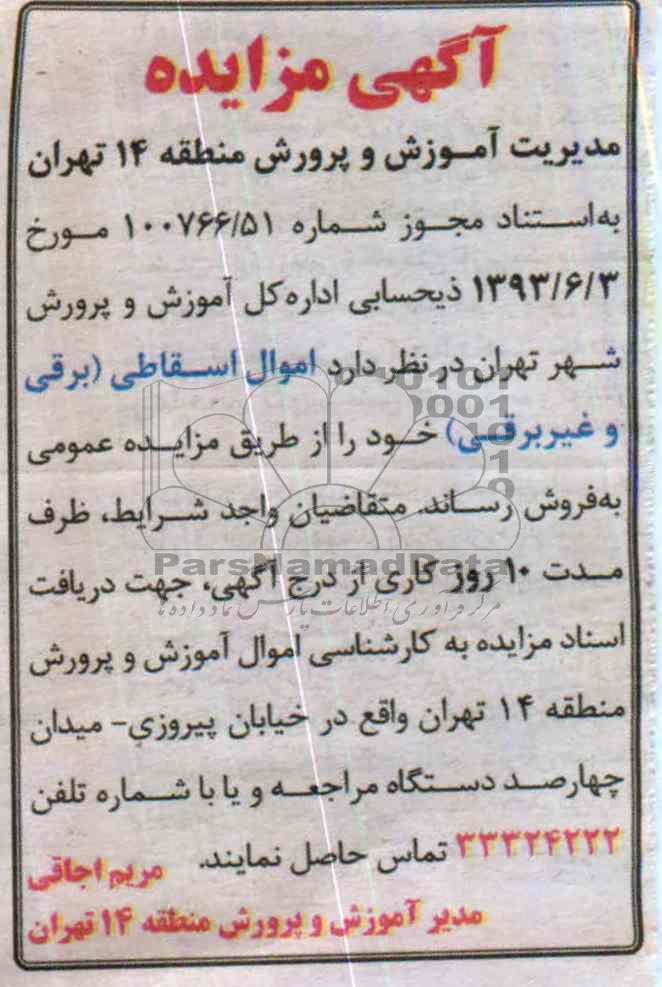 آگهی مزایده
مدیریت آموزش و پرورش منطقه ۱۴ تهران
به‌استناد مجوز شماره ۱۰۰۷۶۶/۵۱ مورخ
۱۳۹۳/۶/۳ ذیحسابی اداره‌کل آموزش و پرورش
شهر تهران در نظر دارد اموال اسقاطی (برقی
و غیربرقی) خود را از طریق مزایده عمومی
به‌فروش رساند. متقاضیان واجد شرایط، ظرف
مدت ۱۰ روز کاری از درج آگهی، جهت دریافت
اسناد مزایده به کارشناسی اموال آموزش و پرورش
منطقه ۱۴ تهران واقع در خیابان پیروزی- میدان
چهارصد دستگاه مراجعه و یا با شماره تلفن
۳۳۳۲۴۲۲۲ تماس حاصل نمایند.
مریم اجاقی
مدیر آموزش و پرورش منطقه ۱۴ تهران
ParsNamadData
مرکز فرآوری اطلاعات پارس نماد داده ها